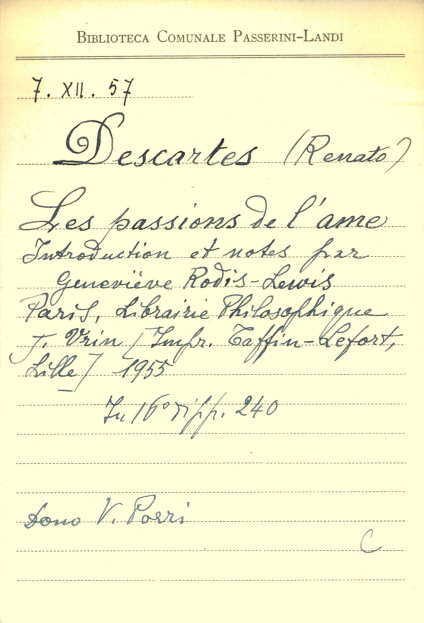 BIBLIOTECA COMUNALE PASSERINI-LANDI
7. XII. 57
Descartes (Renato)
Les passions de l'ame
Introduction et notes par
Geneviève Rodis-Lewis
Paris, Librairie Philosophique
J. Vrin [Impr. Taffin-Lefort,
Lille] 1955
In 16° di pp. 240
Dono V. Porri
C